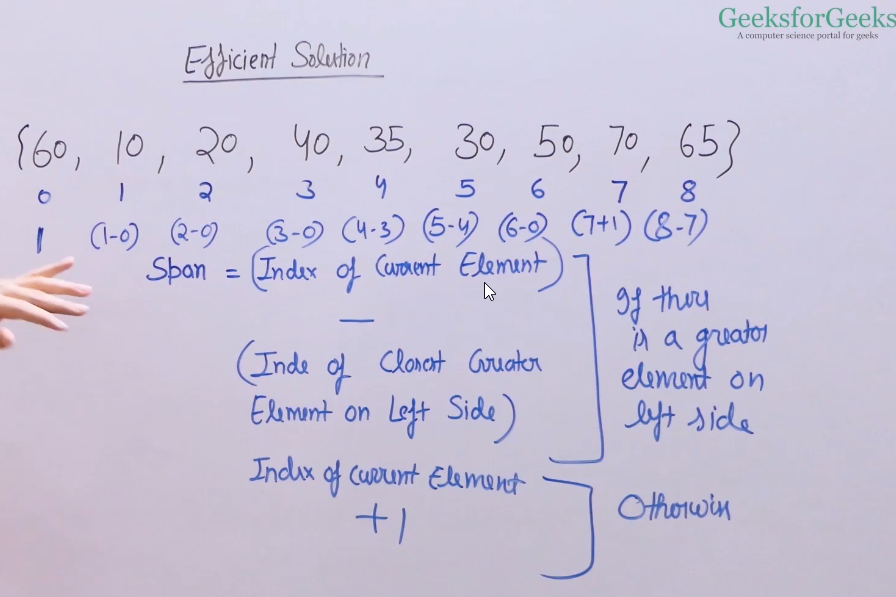 GeeksforGeeks
A computer science portal for geeks
Efficient Solution
{60, 10, 20, 40, 35, 30, 50, 70, 65}
0 1 2 3 4 5 6 7 8
1 (1-0) (2-0) (3-0) (4-3) (5-4) (6-0) (7+1) (8-7)
Span = (Index of Current Element)
—
(Inde of Closest Greater
Element on Left Side)
If there
is a greator
element on
left side
Index of Current Element
+1
Otherwise